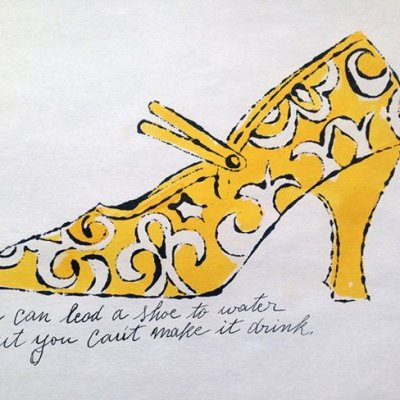 can lead a shoe to water
ut you Can't make it drink.